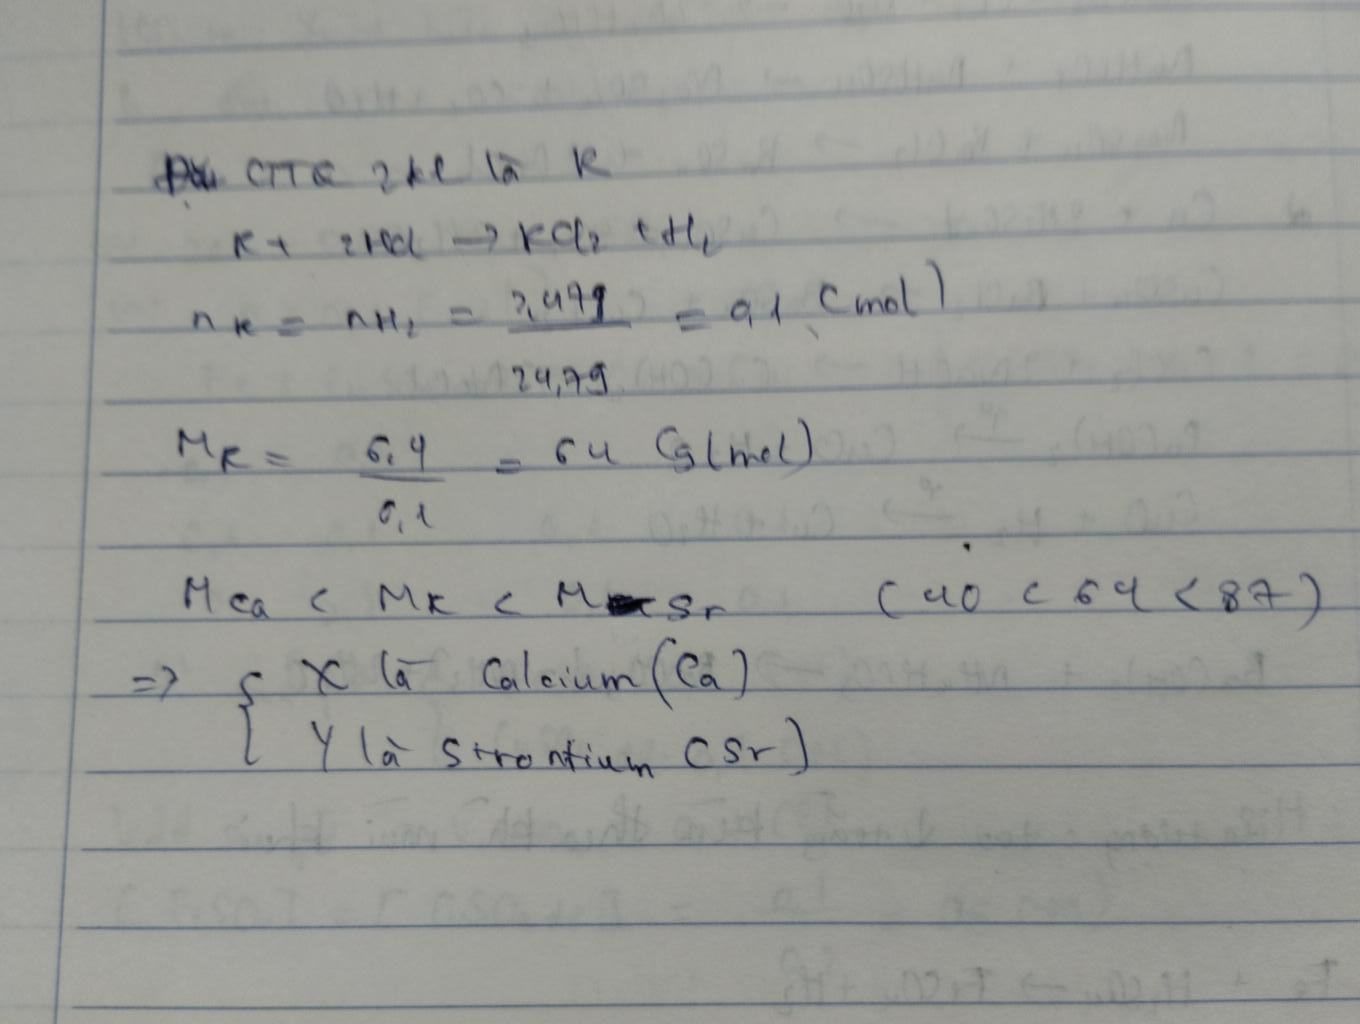 CTTQ 2kl là R
R + 2HCl → RCl₂ + H₂
nR = nH₂ = 2,479 / 24,79 = 0,1 (mol)
MR = 6,4 / 0,1 = 64 (g/mol)
MCa < MR < MSr (40 < 64 < 87)
=> { X là Calcium (Ca)
Y là Strontium (Sr)